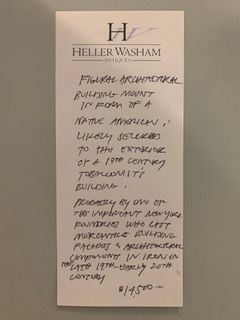 HW
HELLER WASHAM
ANTIQUES
FIGURAL ARCHITECTURAL
BUILDING MOUNT
IN FORM OF A
NATIVE AMERICAN,
LIKELY SECURED
TO THE EXTERIOR
OF A 19TH CENTURY
TOBACCONIST'S
BUILDING.
PROBABLY BY ONE OF
THE IMPORTANT NEW YORK
FOUNDRIES WHO CAST
MERCANTILE BUILDING
FACADES & ARCHITECTURAL
COMPONENTS IN IRON IN
THE LATE 19TH - EARLY 20TH
CENTURY
$14500-